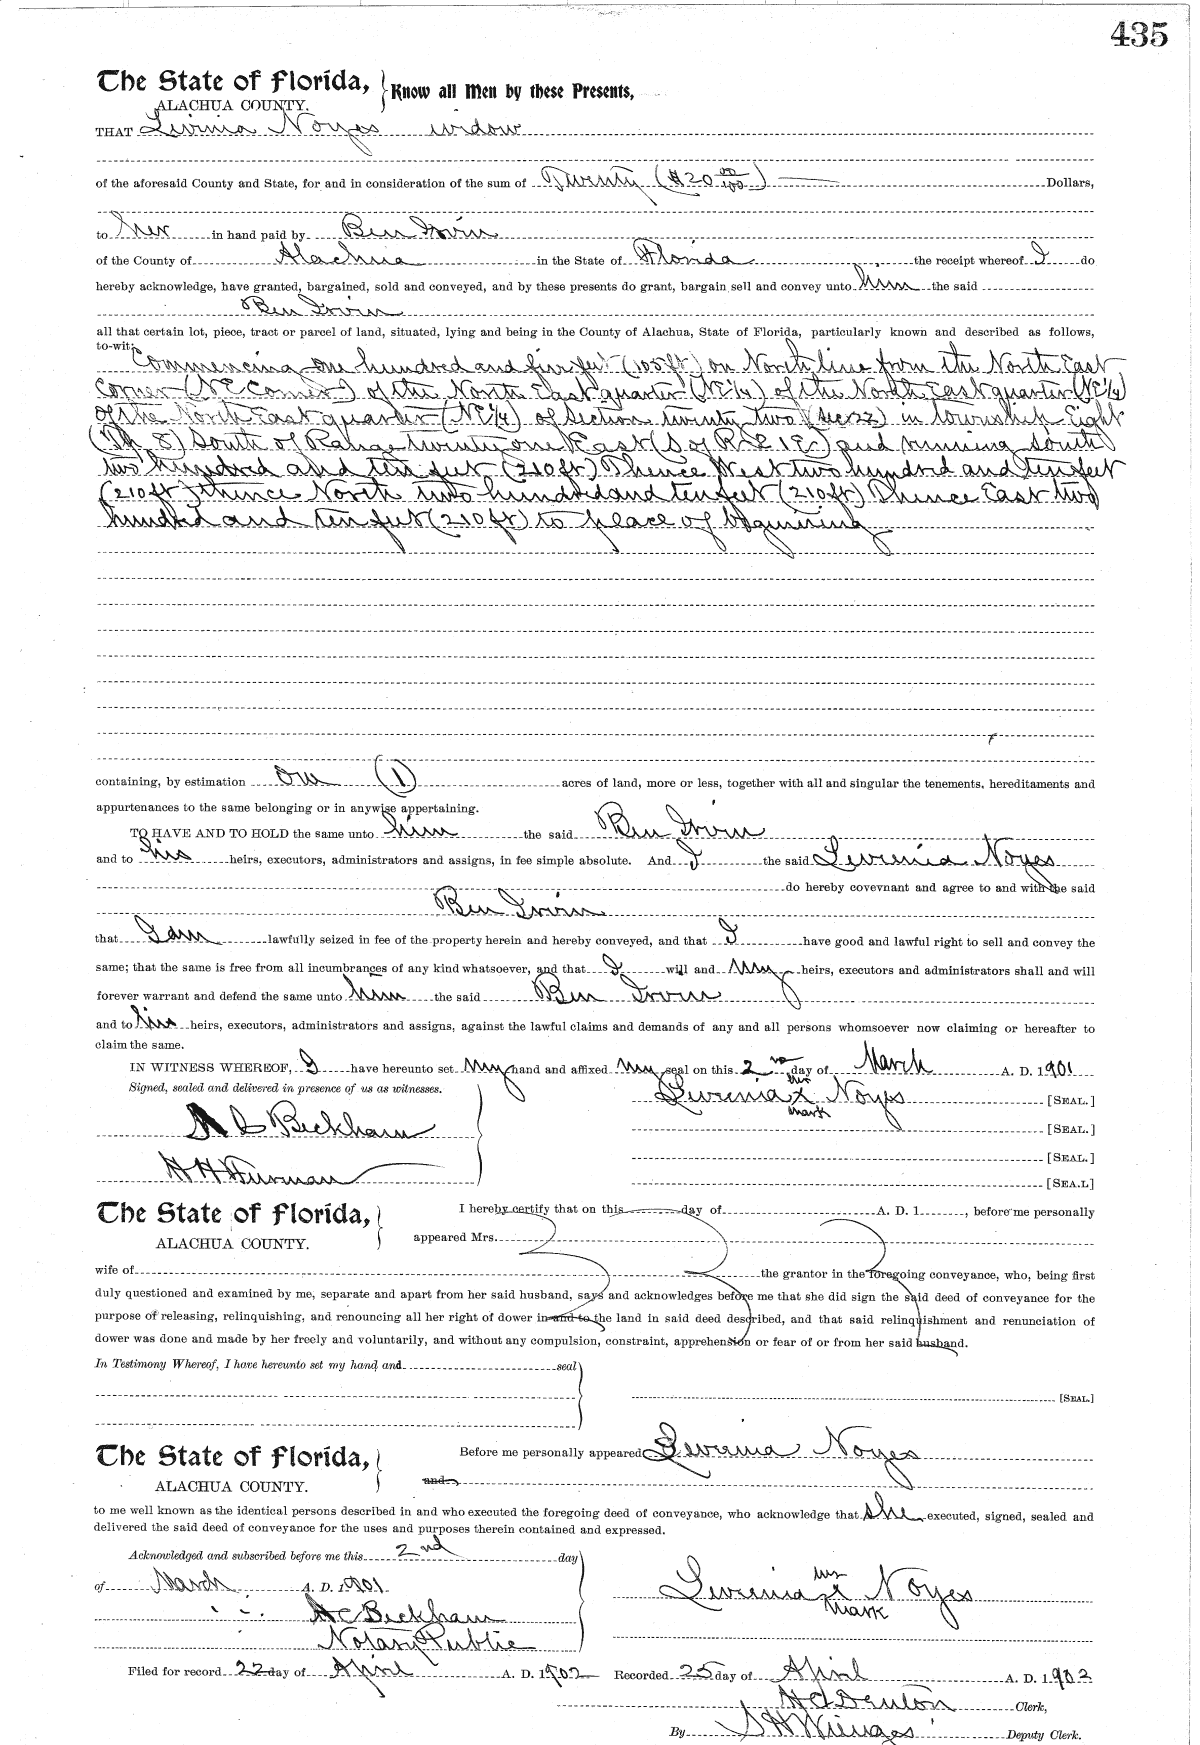 435
The State of Florida, Know all Men by these Presents,
ALACHUA COUNTY.
THAT Levinia Noyes widow
of the aforesaid County and State, for and in consideration of the sum of Twenty ($20 00/100) Dollars,
to her in hand paid by Ben Irvin
of the County of Alachua in the State of Florida the receipt whereof I do
hereby acknowledge, have granted, bargained, sold and conveyed, and by these presents do grant, bargain sell and convey unto him the said
Ben Irvin
all that certain lot, piece, tract or parcel of land, situated, lying and being in the County of Alachua, State of Florida, particularly known and described as follows,
to-wit:
Commencing one hundred and five feet (105 ft) on North line from the North East
Corner (NE Corner) of the North East quarter (NE 1/4) of the North East quarter (NE 1/4)
of the North East quarter (NE 1/4) of Section twenty two (Sec 22) in township Eight
(Tp 8) South of Range twenty one East (S of R 21 E) and running south
two hundred and ten feet (210 ft) Thence West two hundred and ten feet
(210 ft) thence North two hundred and ten feet (210 ft) Thence East two
hundred and ten feet (210 ft) to place of beginning
containing, by estimation one (1) acres of land, more or less, together with all and singular the tenements, hereditaments and
appurtenances to the same belonging or in anywise appertaining.
TO HAVE AND TO HOLD the same unto him the said Ben Irvin
and to his heirs, executors, administrators and assigns, in fee simple absolute. And I the said Levrenia Noyes
do hereby covevnant and agree to and with the said
Ben Irvin
that I am lawfully seized in fee of the property herein and hereby conveyed, and that I have good and lawful right to sell and convey the
same; that the same is free from all incumbrances of any kind whatsoever, and that I will and my heirs, executors and administrators shall and will
forever warrant and defend the same unto him the said Ben Irvin
and to his heirs, executors, administrators and assigns, against the lawful claims and demands of any and all persons whomsoever now claiming or hereafter to
claim the same.
IN WITNESS WHEREOF, I have hereunto set my hand and affixed my seal on this 2nd day of March A. D. 1901
Signed, sealed and delivered in presence of us as witnesses.
Levrenia her x mark Noyes [SEAL.]
Beckham [SEAL.]
[SEAL.]
H H Furman [SEA.L]
The State of Florida,
ALACHUA COUNTY.
I hereby certify that on this day of A. D. 1 , before me personally
appeared Mrs.
wife of the grantor in the foregoing conveyance, who, being first
duly questioned and examined by me, separate and apart from her said husband, says and acknowledges before me that she did sign the said deed of conveyance for the
purpose of releasing, relinquishing, and renouncing all her right of dower in and to the land in said deed described, and that said relinquishment and renunciation of
dower was done and made by her freely and voluntarily, and without any compulsion, constraint, apprehension or fear of or from her said husband.
In Testimony Whereof, I have hereunto set my hand and seal
[SEAL.]
The State of Florida,
ALACHUA COUNTY.
Before me personally appeared Levrenia Noyes
and
to me well known as the identical persons described in and who executed the foregoing deed of conveyance, who acknowledge that she executed, signed, sealed and
delivered the said deed of conveyance for the uses and purposes therein contained and expressed.
Acknowledged and subscribed before me this 2nd day
of March A. D. 1901
Levrenia her x mark Noyes
H C Beckham
Notary Public
Filed for record 22 day of April A. D. 1902 Recorded 25 day of April A. D. 1902
Denton Clerk,
By S H Wienges Deputy Clerk.